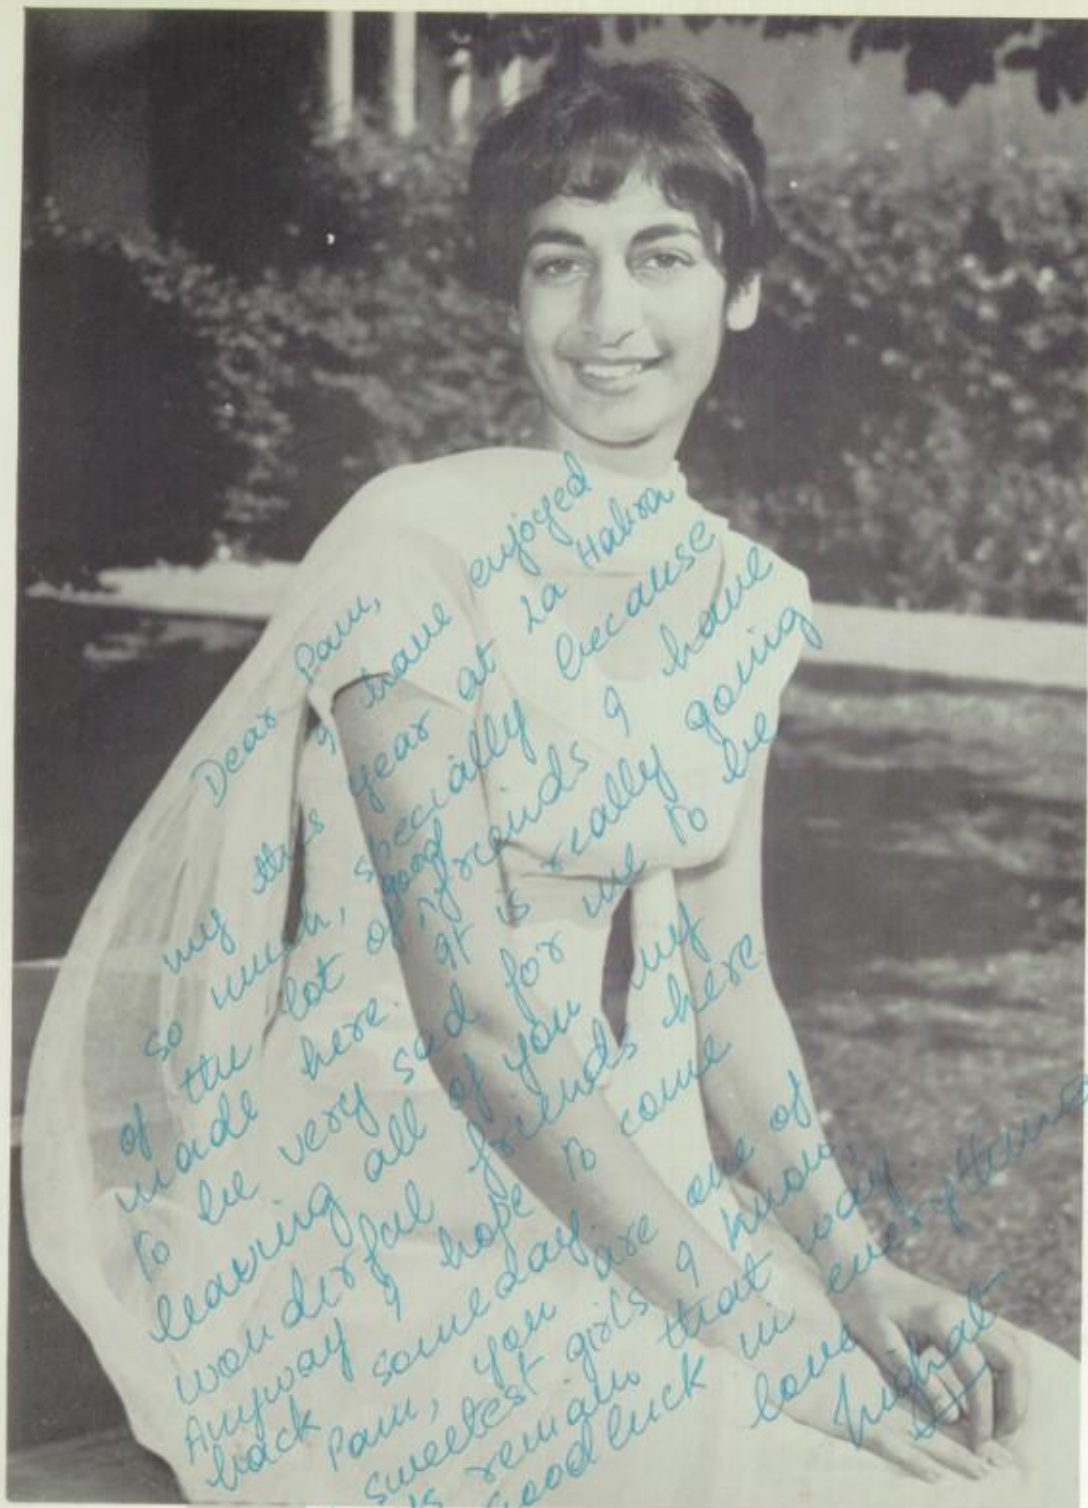 Dear Pam,
I have enjoyed
my this year at La Habra
so much, specially because
of the lot of good friends I have
made here. It is really going
to be very sad for me to be
leaving all of you my
wonderful friends here.
Anyway I hope to come
back someday.
Pam, you are one of
sweetest girls I know
remain that way.
Good luck in everything
love